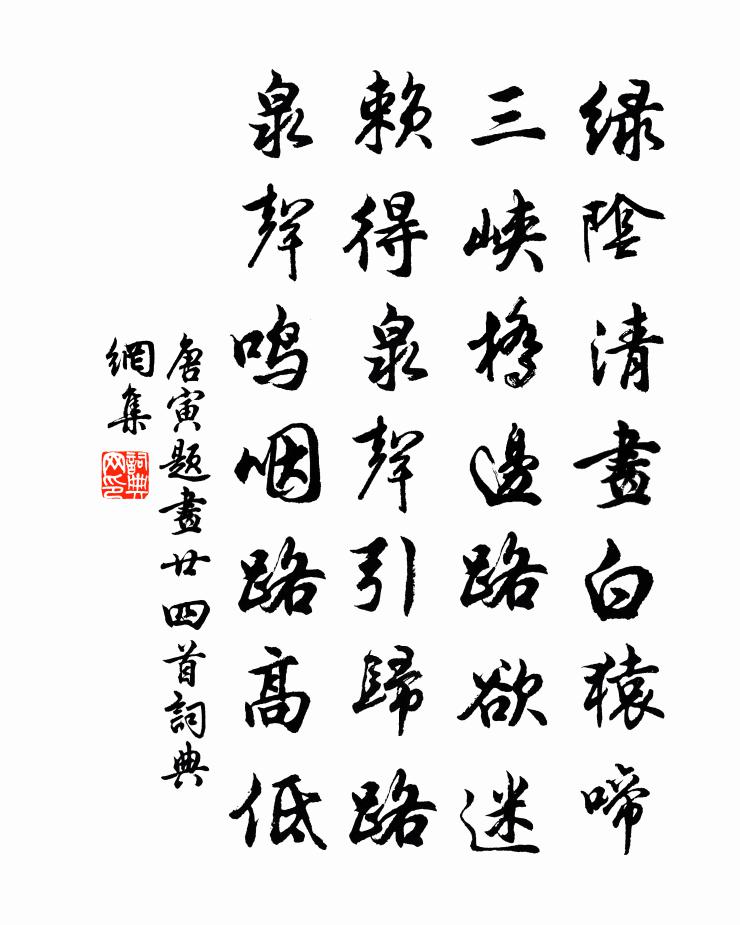 绿陰清晝白猿啼
三峽橋邊路欲迷
賴得泉聲引歸路
泉聲鳴咽路高低
唐寅題畫廿四首詞典
網集
詞典網印